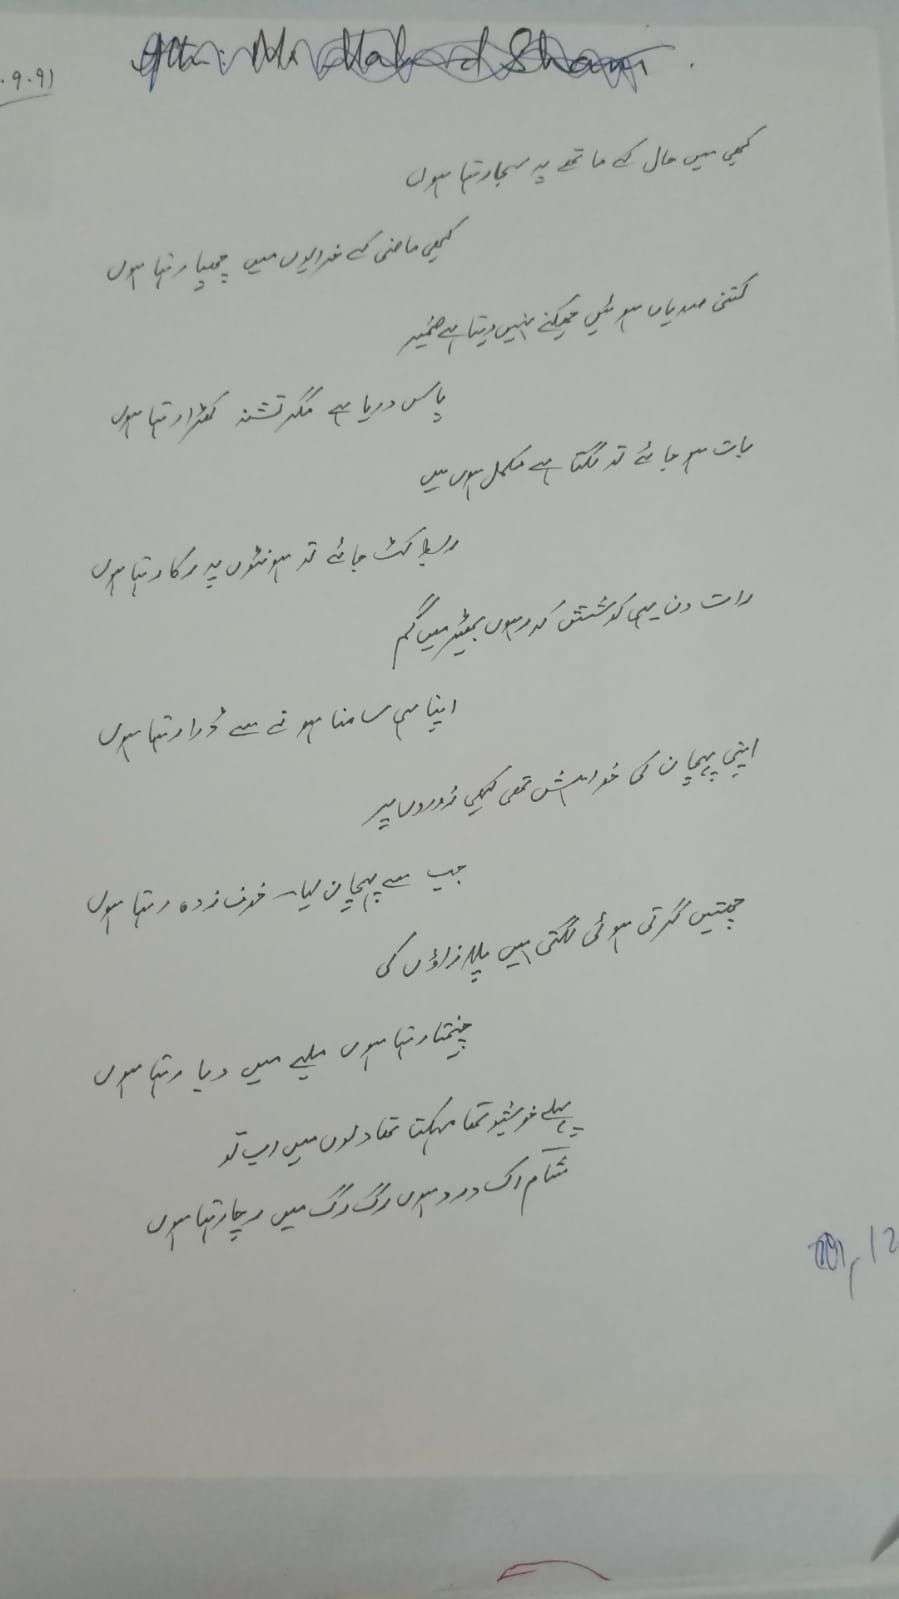 .9.91
Attn: Mr
کبھی میں حال کے ماتھے پہ سجا رہتا ہوں
کبھی ماضی کے خرابوں میں چھپا رہتا ہوں
کتنی صدیاں ہوئیں جھکنے نہیں دیتا ہے ضمیر
پاس دریا ہے مگر تشنہ کھڑا رہتا ہوں
بات ہو جائے تو لگتا ہے مکمل ہوں میں
ربط کٹ جائے تو ہونٹوں پہ رکا رہتا ہوں
رات دن یہی کوشش کہ رہوں بھیڑ میں گم
اپنا ہی سامنا ہونے سے ڈرا رہتا ہوں
اپنی پہچان کی خواہش تھی کبھی زوروں پر
جب سے پہچان لیا۔ خوف زدہ رہتا ہوں
چھتیں گرتی ہوئی لگتی ہیں پلازاؤں کی
چیختا رہتا ہوں ملبے میں دبا رہتا ہوں
پہلے خوشبو تھا مہکتا تھا دلوں میں اب تو
شام اک درد ہوں رگ رگ میں رچا رہتا ہوں
12